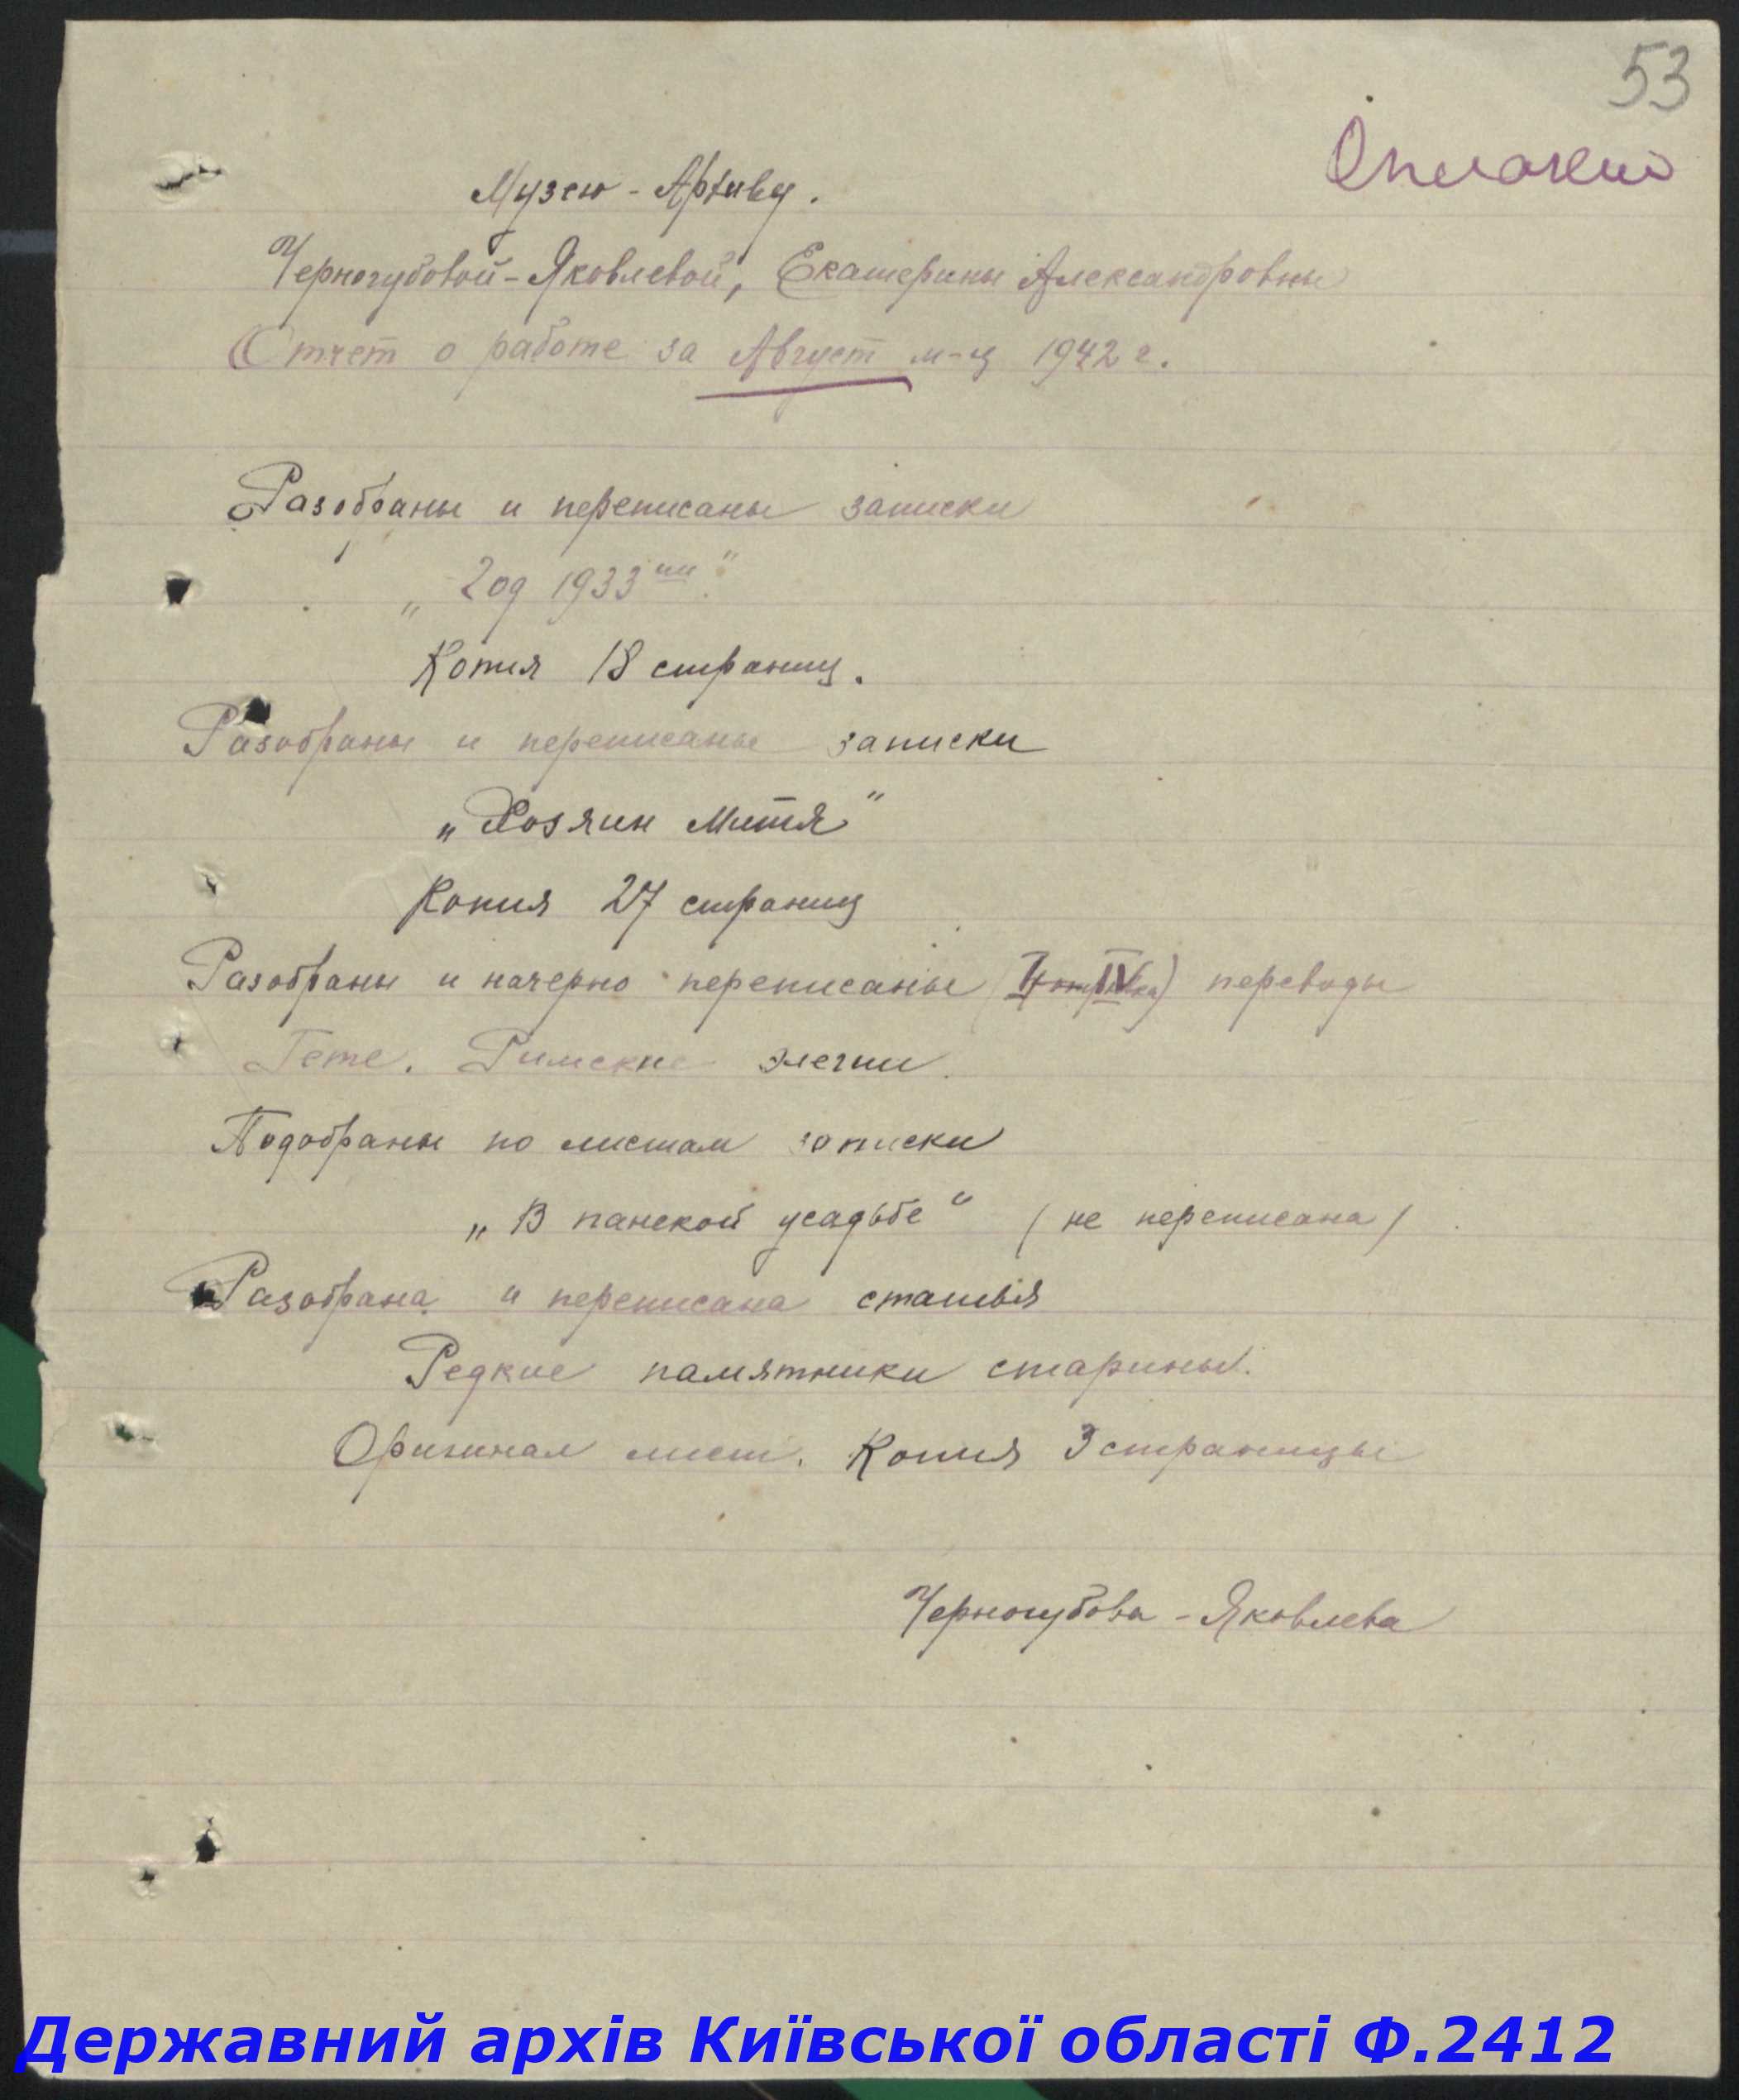 53
Музею - Архиву.
Черногубовой - Яковлевой, Екатерины Александровны
Отчет о работе за Август м-ц 1942 г.
Разобраны и переписаны записки
„ Год 1933 ий "
Копия 18 страниц.
Разобраны и переписаны записки
„ Хозяин Митя "
Копия 27 страниц
Разобраны и начерно переписаны IV) переводы
Гете. Римские элегии.
Подобраны по листам записки
„ В панской усадьбе " ( не переписана )
Разобрана и переписана статья
Редкие памятники старины.
Оригинал лист. Копия 3 страницы
Черногубова - Яковлева
Державний архів Київської області Ф.2412